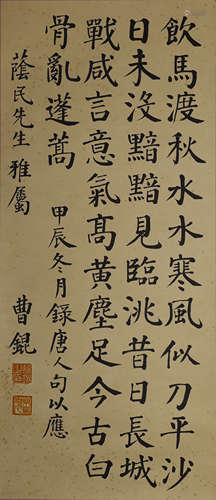 飲馬渡秋水水寒風似刀平沙
日未沒黯黯見臨洮昔日長城
戰咸言意氣高黃塵足今古白
骨亂蓬蒿
甲辰冬月録唐人句以應
蔭民先生雅屬
曹錕